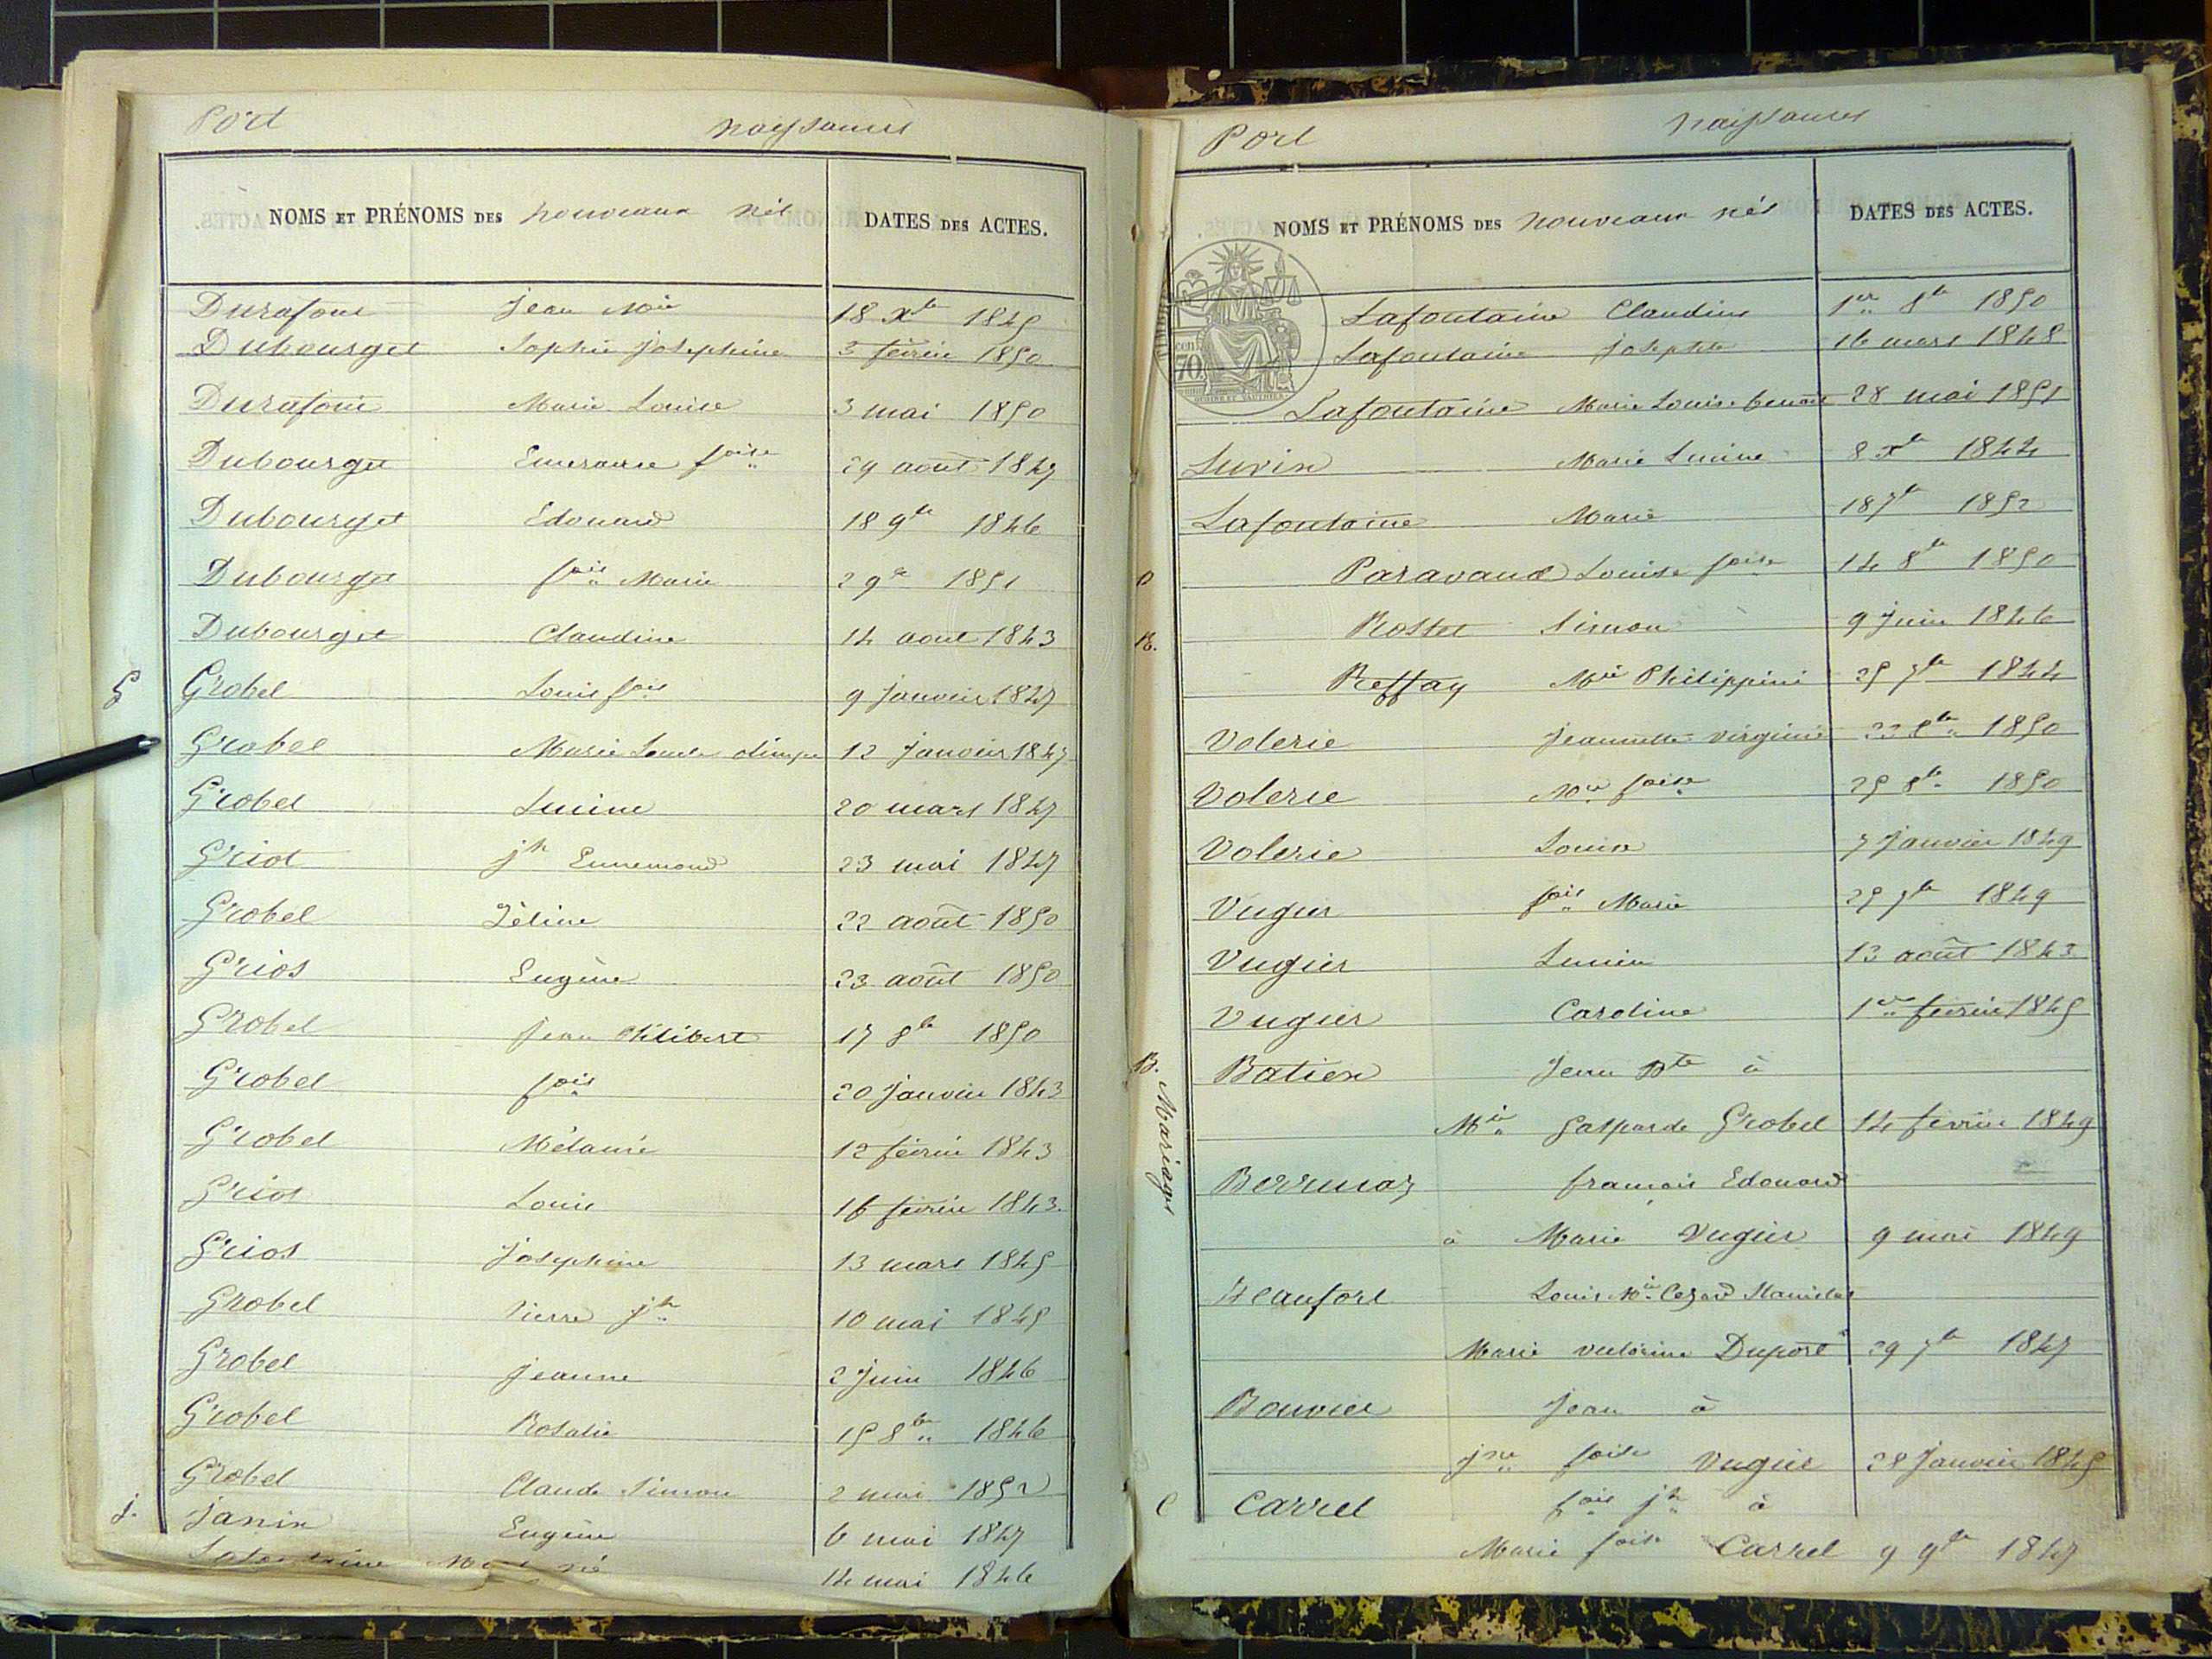 Port naissances
NOMS ET PRÉNOMS DES nouveaux nés DATES DES ACTES.
Durafour Jean Mie 18 Xbre 1845
Dubourget Sophie joséphine 3 février 1850
Durafour Marie Louise 3 mai 1850
Dubourget foise 29 août 1849
Dubourget Edouard 18 9bre 1846
Dubourget fois Marie 1851
Dubourget Claudine 14 août 1843
G Grobel Louis fois 9 janvier 1847
Grobel Marie 12 janvier 1847
Grobel Lucine 20 mars 1847
Griot jh Ennemond 23 mai 1847
Grobel Zéline 22 août 1850
Griot Eugène 23 août 1850
Grobel Jean Philibert 17 8bre 1850
Grobel fois 20 janvier 1843
Grobel Mélanie 12 février 1843
Griot Louis 16 février 1843
Griot Joséphine 13 mars 1845
Grobel Pierre jh 10 mai 1845
Grobel Jeanne 2 juin 1846
Grobel Rosalie 15 8bre 1846
Grobel Claude Simon 2 mai 1852
J. Janin Eugène 6 mai 1847
14 mai 1846
Port naissances
NOMS ET PRÉNOMS DES nouveaux nés DATES DES ACTES.
70
Lafontaine Claudius 1er 8bre 1850
Lafontaine josephte 16 mars 1848
Lafontaine Marie Louise benoite 28 mai 1851
Luvin Marie Lucine 8 Xbre 1844
Lafontaine Marie 18 7bre 1852
P Paravand Louise foise 14 8bre 1850
R. Rostet Simon 9 juin 1846
Reffay Mie Philippine 25 7bre 1844
Volerie Jeannette virginie 23 8bre 1850
Volerie Mie foise 25 8bre 1850
Volerie Louise 7 janvier 1849
Vugier fois Marie 25 7bre 1849
Vugier Lucien 13 août 1843
Vugier Caroline 1er février 1845
B. Batien Jean Bte à
Mariages
Mie Gasparde Grobel 14 février 1849
francois Edouard
à Marie Vugier 9 mai 1849
Beaufort Louis Mie Cezard Stanislas
Marie Duport 29 7bre 1847
Bouvier Jean à
jne foise Vugier 28 janvier 1845
C Carrel fois jh à
Marie foise Carrel 9 9bre 1847